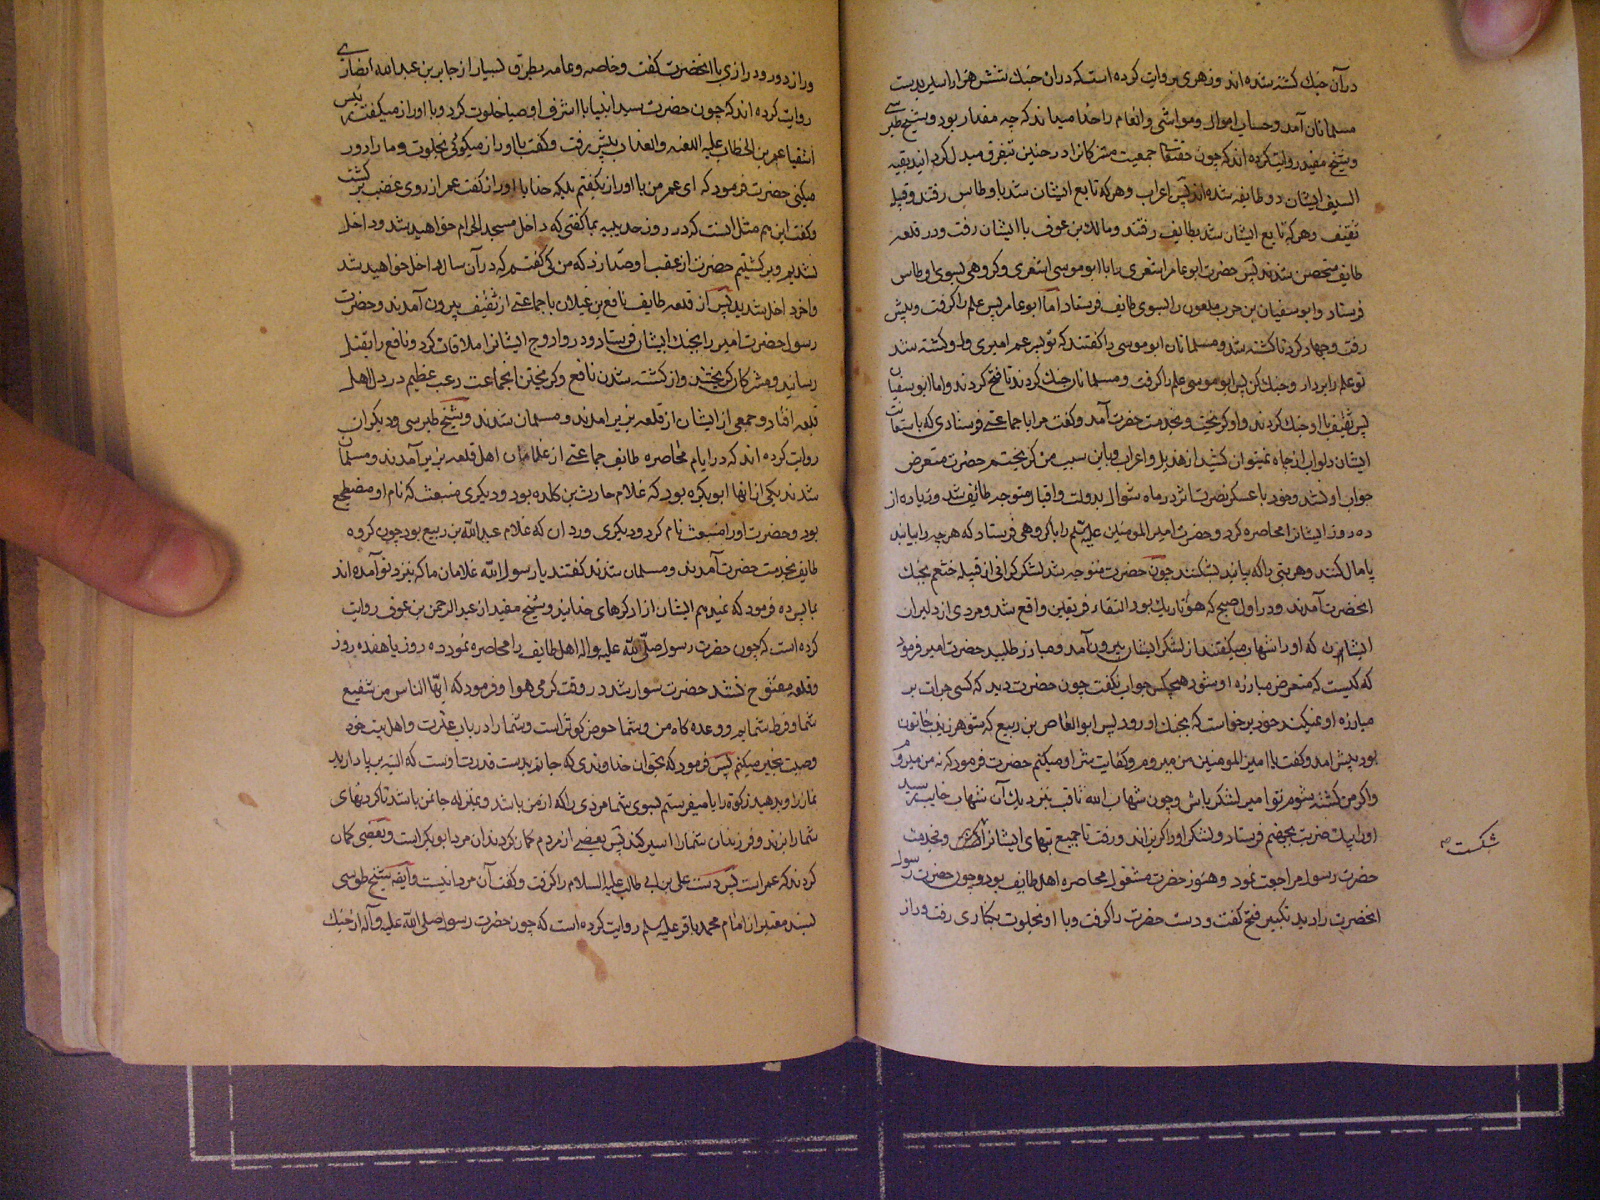 در آن جنك كشته شده اند و زهری روایت كرده است كه در ان جنك شش هزار اسیر بدست
مسلمانان آمد و حساب اموال و مواشی و انعام را خدا میداند كه چه مقدار بود و شیخ طبرسی
و شیخ مفید روایت كرده اند كه چون حقتعالی جمعیت مشركانرا در حنین بتفرق مبدل كردانید بقیه
السیف ایشان دو طایفه شده اند پس اعراب و هر كه تابع ایشان شد باوطاس رفتند و قبیله
ثقیف و هر كه تابع ایشان شد بطایف رفتند و مالك بن عوف با ایشان رفت و در قلعه
طایف متحصن شدند پس حضرت ابو عامر اشعری را با ابو موسی اشعری و كروهی بسوی اوطاس
فرستاد و ابو سفیان بن حرب ملعون را بسوی طایف فرستاد اما ابو عامر پس علم را كرفت و پیش
رفت و جهاد كرد تا كشته شد و مسلمانان ابو موسی را كفتند كه تو پسر عم امیری و او كشته شد
تو علم را بردار و جنك كن پس ابو موسی علم را كرفت و مسلمانان جنك كردند تا فتح كردند و اما ابو سفیان
پس ثقیف با او جنك كردند و او كریخت و بخدمت حضرت آمد و كفت مرا با جماعتی فرستادی كه باستعانت
ایشان دلو آب از چاه نمیتوان كشید از هذیل و اعراب و باین سبب من كریختم حضرت متعرض
جواب او نشد و خود با عسكر نصرت اثر در ماه شوال بدولت و اقبال متوجه طایف شد و زیاده از
ده روز ایشانرا محاصره كرد و حضرت امیر المومنین علیه السلم را با كروهی فرستاد كه هر چه را بیابند
پامال كنند و هر بتی را كه بیابند بشكنند چون حضرت متوجه شد لشكر كرانی از قبیله خثعم بجنك
انحضرت آمدند و در اول صبح كه هوا تاریك بود التقاء فریقین واقع شد و مردی از دلیران
ایشان كه او را شهاب میكفتند از لشكر ایشان بیرون آمد و مبارز طلبید حضرت امیر فرمود
كه كیست كه متعرض مبارزه او شود هیچكس جواب نكفت چون حضرت دید كه كسی جرات بر
مبارزه او نمیكند خود برخواست كه بجنك او رود پس ابو العاص بن ربیع كه شوهر زینب خاتون
بود پیش امد و كفت یا امیر المومنین من میروم و كفایت شر او میكنم حضرت فرمود كه نه من میروم
و اكر من كشته شوم تو امیر لشكر باش و چون شهاب الله ثاقب بنزدیك آن شهاب خایب رسید
او را بیك ضربت بجهنم فرستاد و لشكر او را كریزاند و رفت تا جمیع بتهای ایشانرا و بخدمت
شكست
حضرت رسول مراجعت نمود و هنوز حضرت مشغول محاصره اهل طایف بود و چون حضرت رسول
انحضرت را دید تكبیر فتح كفت و دست حضرت را كرفت و با او بخلوت بكناری رفت و راز
و راز دور و درازی با انحضرت كفت و خاصه و عامه بطرق بسیار از جابر بن عبد الله انصاری
روایت كرده اند كه چون حضرت سید انبیا با اشرف اوصیا خلوت كرد و با او راز میكفت رئیس
اشقیا عمر بن الخطاب علیه اللعنه و العذاب پیش رفت و كفت با او راز میكوئی بخلوت و ما را دور
میكنی حضرت فرمود كه ای عمر من با او راز نكفتم بلكه خدا با او راز كفت عمر از روی غضب بر كشت
و كفت این هم مثل انست كه در روز حدیبیه بما كفتی كه داخل مسجد الحرام خواهید شد و داخل
نشدیم و بر كشتیم حضرت از عقب او صدا زد كه من كی كفتم كه در آن سال داخل خواهید شد
و اخر داخل شدید پس از قلعه طایف نافع بن غیلان با جماعتی از ثقیف بیرون آمدند و حضرت
رسول حضرت امیر را بجنك ایشان فرستاد و در وادی وج ایشانرا ملاقات كرد و نافع را بقتل
رسانید و مشركان كریختند و از كشته شدن نافع و كریختن انجماعت رعب عظیم در دل اهل
قلعه افتاد و جمعی از ایشان از قلعه بزیر امدند و مسلمان شدند و شیخ طبرسی و دیكران
روایت كرده اند كه در ایام محاصره طایف جماعتی از غلامان اهل قلعه بزیر آمدند و مسلمان
شدند یكی از انها ابو بكره بود كه غلام حارث بن كلده بود و دیكری منبعث كه نام او مضطجع
بود و حضرت او را منبعث نام كرد و دیكری وردان كه غلام عبد الله بن ربیع بود چون كروه
طایف بخدمت حضرت آمدند و مسلمان شدند كفتند یا رسول الله غلامان ما كه بنزد تو آمده اند
بما پس ده فرمود كه نمیدهم ایشان ازاد كرهای خدایند و شیخ مفید از عبد الرحمن بن عوف روایت
كرده است كه چون حضرت رسول صلی الله علیه و اله اهل طایف را محاصره نمود ده روز یا هفده روز
و قلعه مفتوح نشد حضرت سوار شد در وقت كرمی هوا و فرمود كه ایها الناس من شفیع
شما و فرط شمایم و وعده كاه من و شما حوض كوثر است و شما را در باب عترت و اهل بیت خود
وصیت بخیر میكنم پس فرمود كه بحق آن خداوندی كه جانم بدست قدرت اوست كه البته بپا دارید
نماز را و بدهید زكوة را یا میفرستم بسوی شما مردی را كه از من باشد و بمنزله جان من باشد تا كردنهای
شما را بزند و فرزندان شما را اسیر كند پس بعضی از مردم كمان كردند ان مرد ابو بكر است و بعضی كمان
كردند كه عمر است پس دست علی بن ابی طالب علیه السلام را كرفت و كفت آن مرد اینست و ایضا شیخ طوسی
بسند معتبر از امام محمد باقر علیه السلم روایت كرده است كه چون حضرت رسول صلی الله علیه و آله از جنك